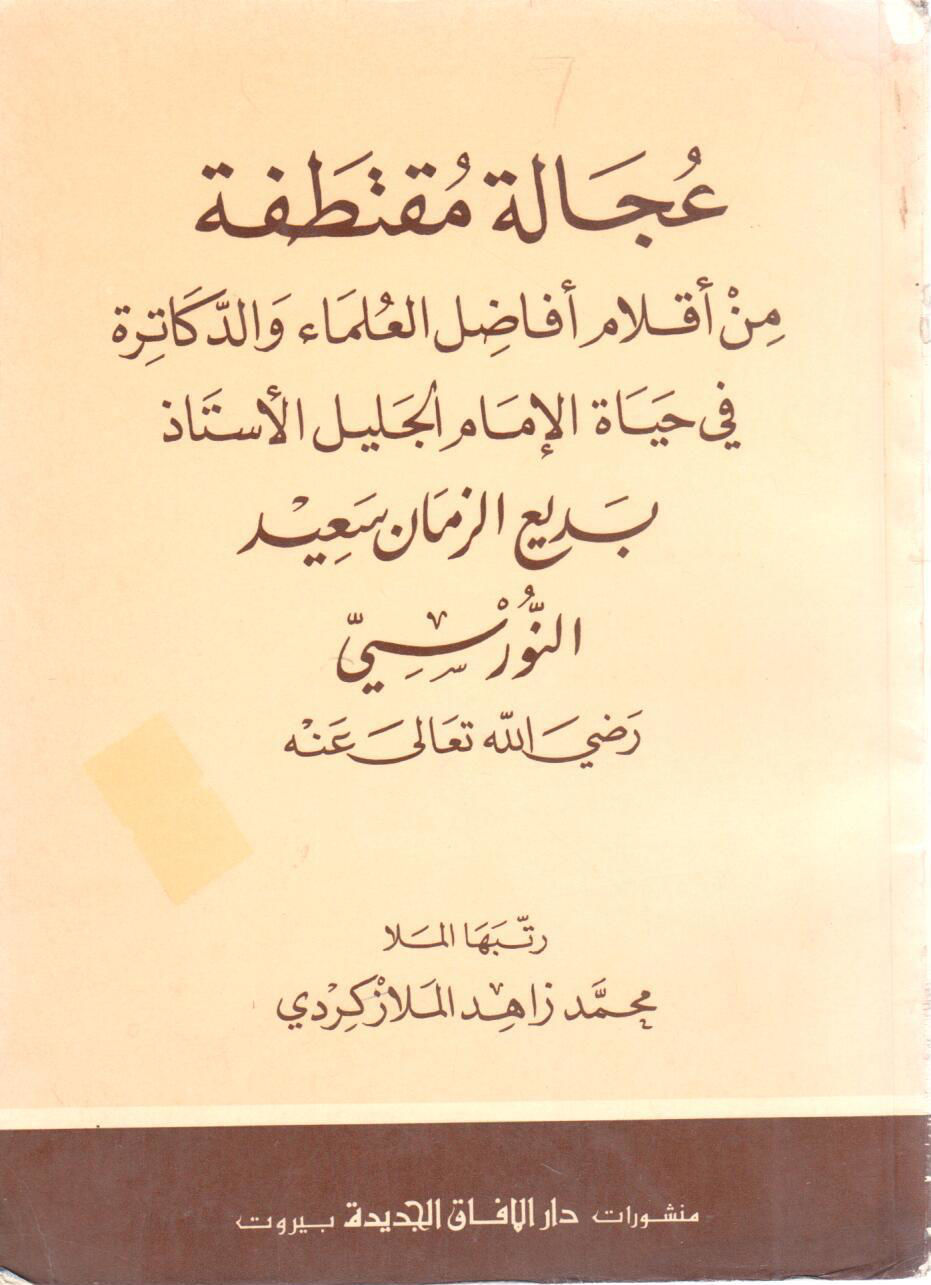 عُجَالة مُقتَطَفة
مِنْ أقلام أفاضِل العُلمَاء وَالدَّكَاتِرة
في حيَاة الإمَام الجَليل الأستَاذ
بَديع الزمَان سَعِيْد
النُّوْرْسِيّ
رَضيَ الله تعَالىَ عَنْه
رتَّبَهَا المَلا
محمَّد زاهِد المَلازْكِرْدي
منشورات دار الآفاق الجديدة بيروت